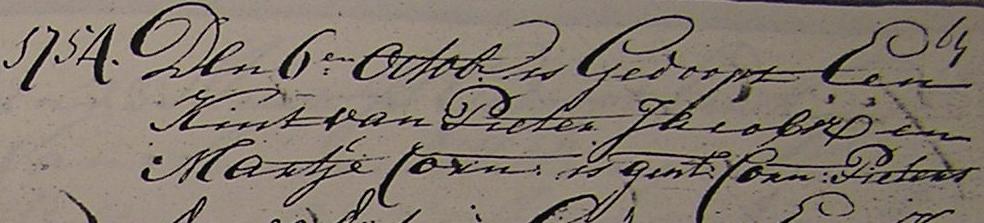 1754. Den 6en Octob: is Gedoopt Een
Kint van Pieter Jacobsz en
Maartje Corn: is gent: Corn: Pieters